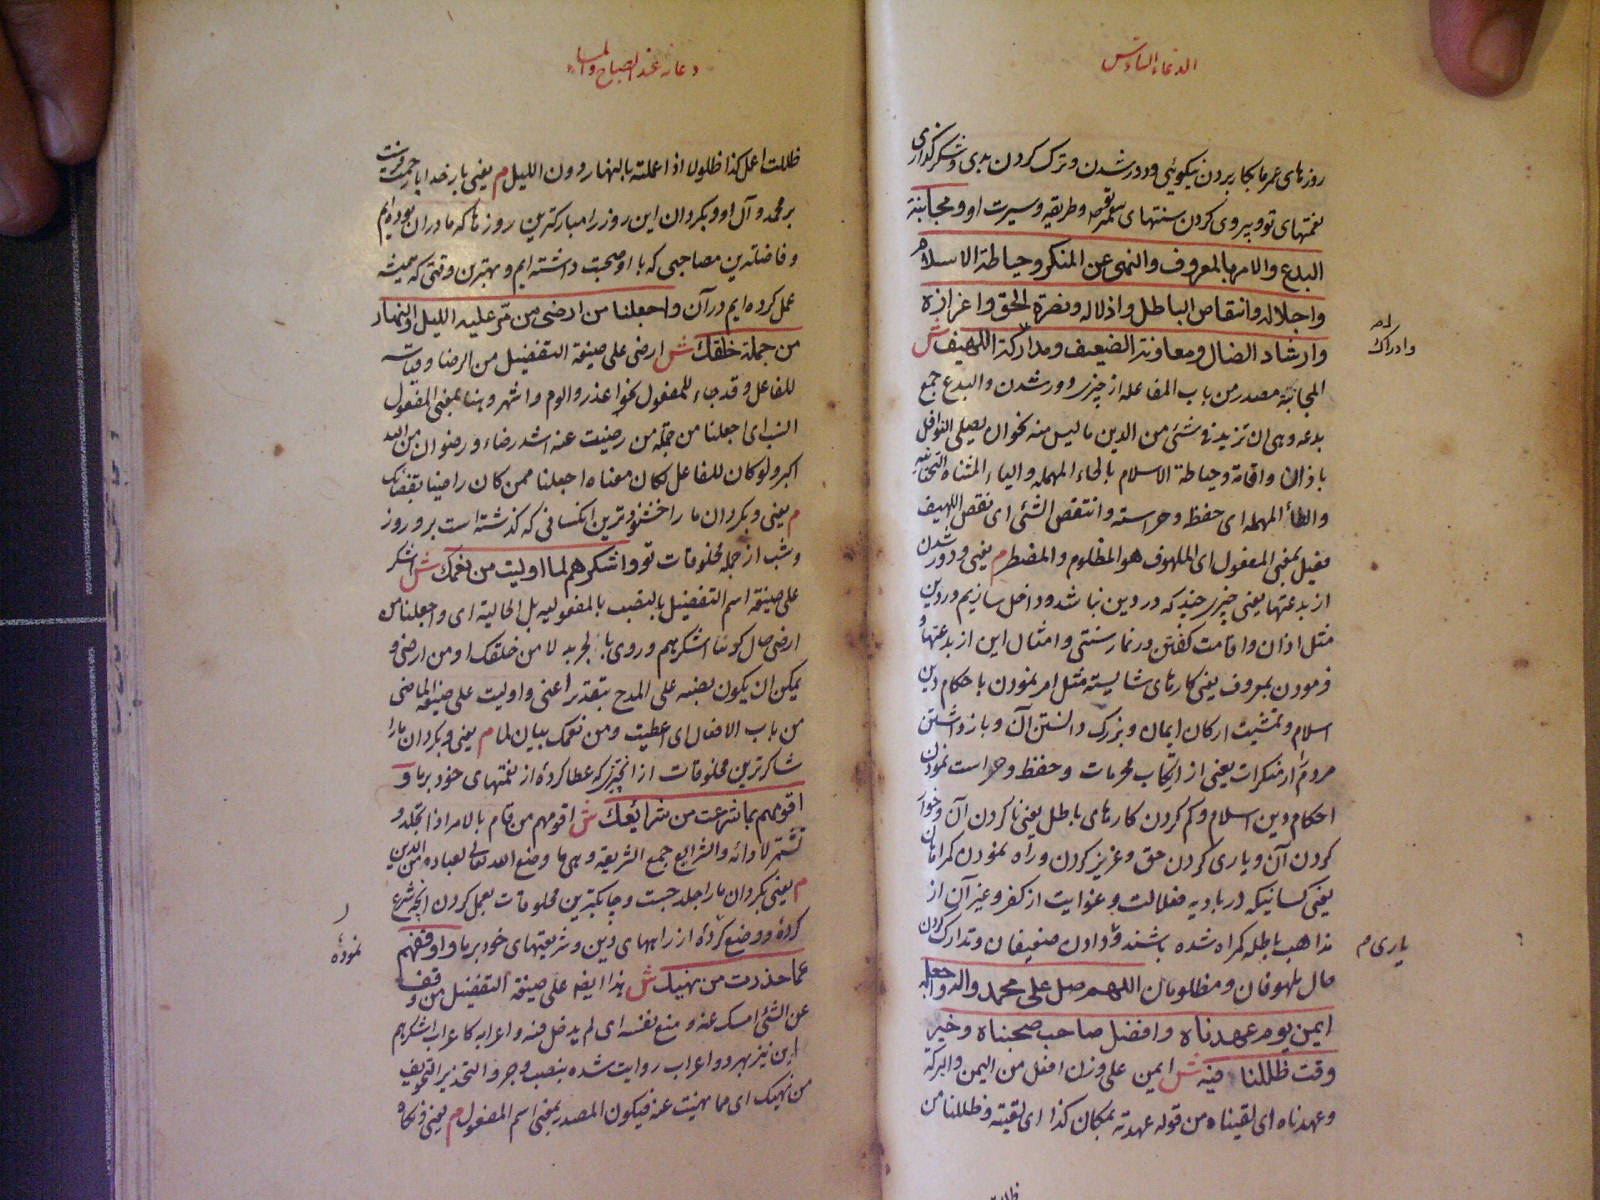 الدعاء السادس
روزهای عمر ما بکار بردن نیکوئی و دور شدن و ترک کردن بدی و شکرگذاری
نعمتهای تو و پیروی کردن سنتهای پیغمبر و طریقه و سیرت او و مجانبة
البدع والامر بالمعروف والنهی عن المنکر و حیاطة الاسلام
واجلاله وانتقاص الباطل واذلاله ونصرة الحق واعزازه
وارشاد الضال ومعاونة الضعیف ومدارکة اللهیف ش
المجانبة مصدر من باب المفاعله از چیزی دور شدن والبدع جمع
بدعه وهی ان تزید فی شئ من الدین ما لیس منه نحو ان یصلی النوافل
باذان واقامة وحیاطة الاسلام بالحاء المهمله والیاء المثناة التحتانیه
والطاء المهمله ای حفظ وحراسته وانتقص الشئ ای نقص اللهیف
فعیل بمعنی المفعول ای الملهوف هو المظلوم والمضطر م یعنی و دور شدن
از بدعتها یعنی چیزی چند که در دین نباشد و داخل سازیم در دین
مثل اذان واقامت گفتن در نماز سنتی وامثال این از بدعتها و
فرمودن بمعروف یعنی کارهای شایسته مثل امر نمودن باحکام دین
اسلام و تمشیت ارکان ایمان و بزرگ دانستن آن و باز داشتن
مردم از منکرات یعنی از ارتکاب محرمات و حفظ و حراست نمودن
احکام دین اسلام و کم کردن کارهای باطل یعنی نا کردن آن و خوار
کردن آن و یاری کردن حق و عزیز کردن و راه نمودن گمراهان
یعنی کسانیکه در بادیه ضلالت و غوایت از کفر و غیر آن از
مذاهب باطله گمراه شده باشند و دادن ضعیفان و تدارک کردن
حال ملهوفان و مظلومان اللهم صل علی محمد واله واجعله
ایمن یوم عهدناه وافضل صاحب صحبناه وخیر
وقت ظللنا فیه ش ایمن علی وزن افعل من الیمن والبرکة
وعهدناه ای لقیناه من قوله عهدته بمکان کذا ای لقیته وظللنا من
وادراک
یاری م
دعائه عند الصباح والمساء
ظللت اعمل کذا ظلولا اذا عملته بالنهار دون اللیل م یعنی بار خدایا رحمت فرست
بر محمد و آل او و بگردان این روز را مبارکترین روزها که ما در ان بوده ایم
و فاضلترین مصاحبی که با او صحبت داشته ایم و بهترین وقتی که همیشه
عمل کرده ایم در آن واجعلنا من ارضی من مر علیه اللیل والنهار
من جملة خلقک ش ارضی علی صیغة التفضیل من الرضا وقیاسه
للفاعل وقد جاء للمفعول نحو اعذر والوم واشهر وهنا بمعنی المفعول
انسب ای اجعلنا من جملة من رضیت عنه اشد رضاء ورضوان من الله
اکبر ولو کان للفاعل لکان معناه اجعلنا ممن کان راضیا بقضائک
م یعنی و بگردان ما را خشنودترین انکسانی که گذشته است بر او روز
وشب از جمله مخلوقات تو واشکرهم لما اولیت من نعمک ش اشکر
علی صیغة اسم التفضیل بالنصب بالمفعولیه بل الحالیة ای واجعلنا من
ارضی حال کوننا اشکرهم وروی بالجر بدلا من خلقک او من ارضی و
یمکن ان یکون نصبه علی المدح بتقدیر اعنی واولیت علی صیغة الماضی
من باب الافعال ای اعطیت ومن نعمک بیان لما م یعنی و بگردان ما را
شاکرترین مخلوقات از انچیزی که عطا کردهٔ از نعمتهای خود بر ما و
اقومهم بما شرعت من شرایعک ش اقومهم من قام بالامر اذا تجلد و
تشمر لادائه والشرایع جمع الشریعة وهی ما وضع الله تعالی لعباده من الدین
م یعنی بگردان ما را جلد چست و چابکترین مخلوقات بعمل کردن انچه شرع
کردهٔ و وضع کردهٔ از راههای دین و شریعتهای خود بر ما واوقفهم
عما حذرت من نهیک ش هذا ایضا علی صیغة التفضیل من وقف
عن الشئ امسک عنه ومنع نفسه ای لم یدخل فیه واعرابه کاعراب اشکرهم
این نیز بهر دو اعراب روایت شده بنصب وجر والتحذیر التخویف
من نهیک ای مما نهیت عنه فیکون المصدر بمعنی اسم المفعول م یعنی و نکاه
نموده